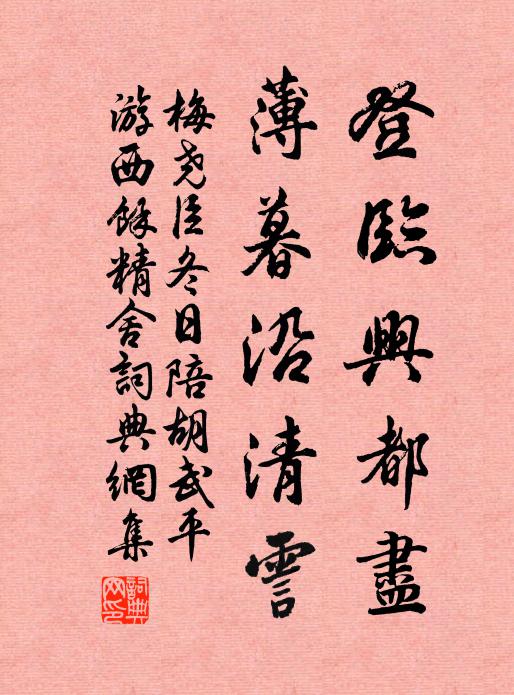 登臨興都盡
薄暮沿清霅
梅尧臣冬日陪胡武平
游西餘精舍詞典網集